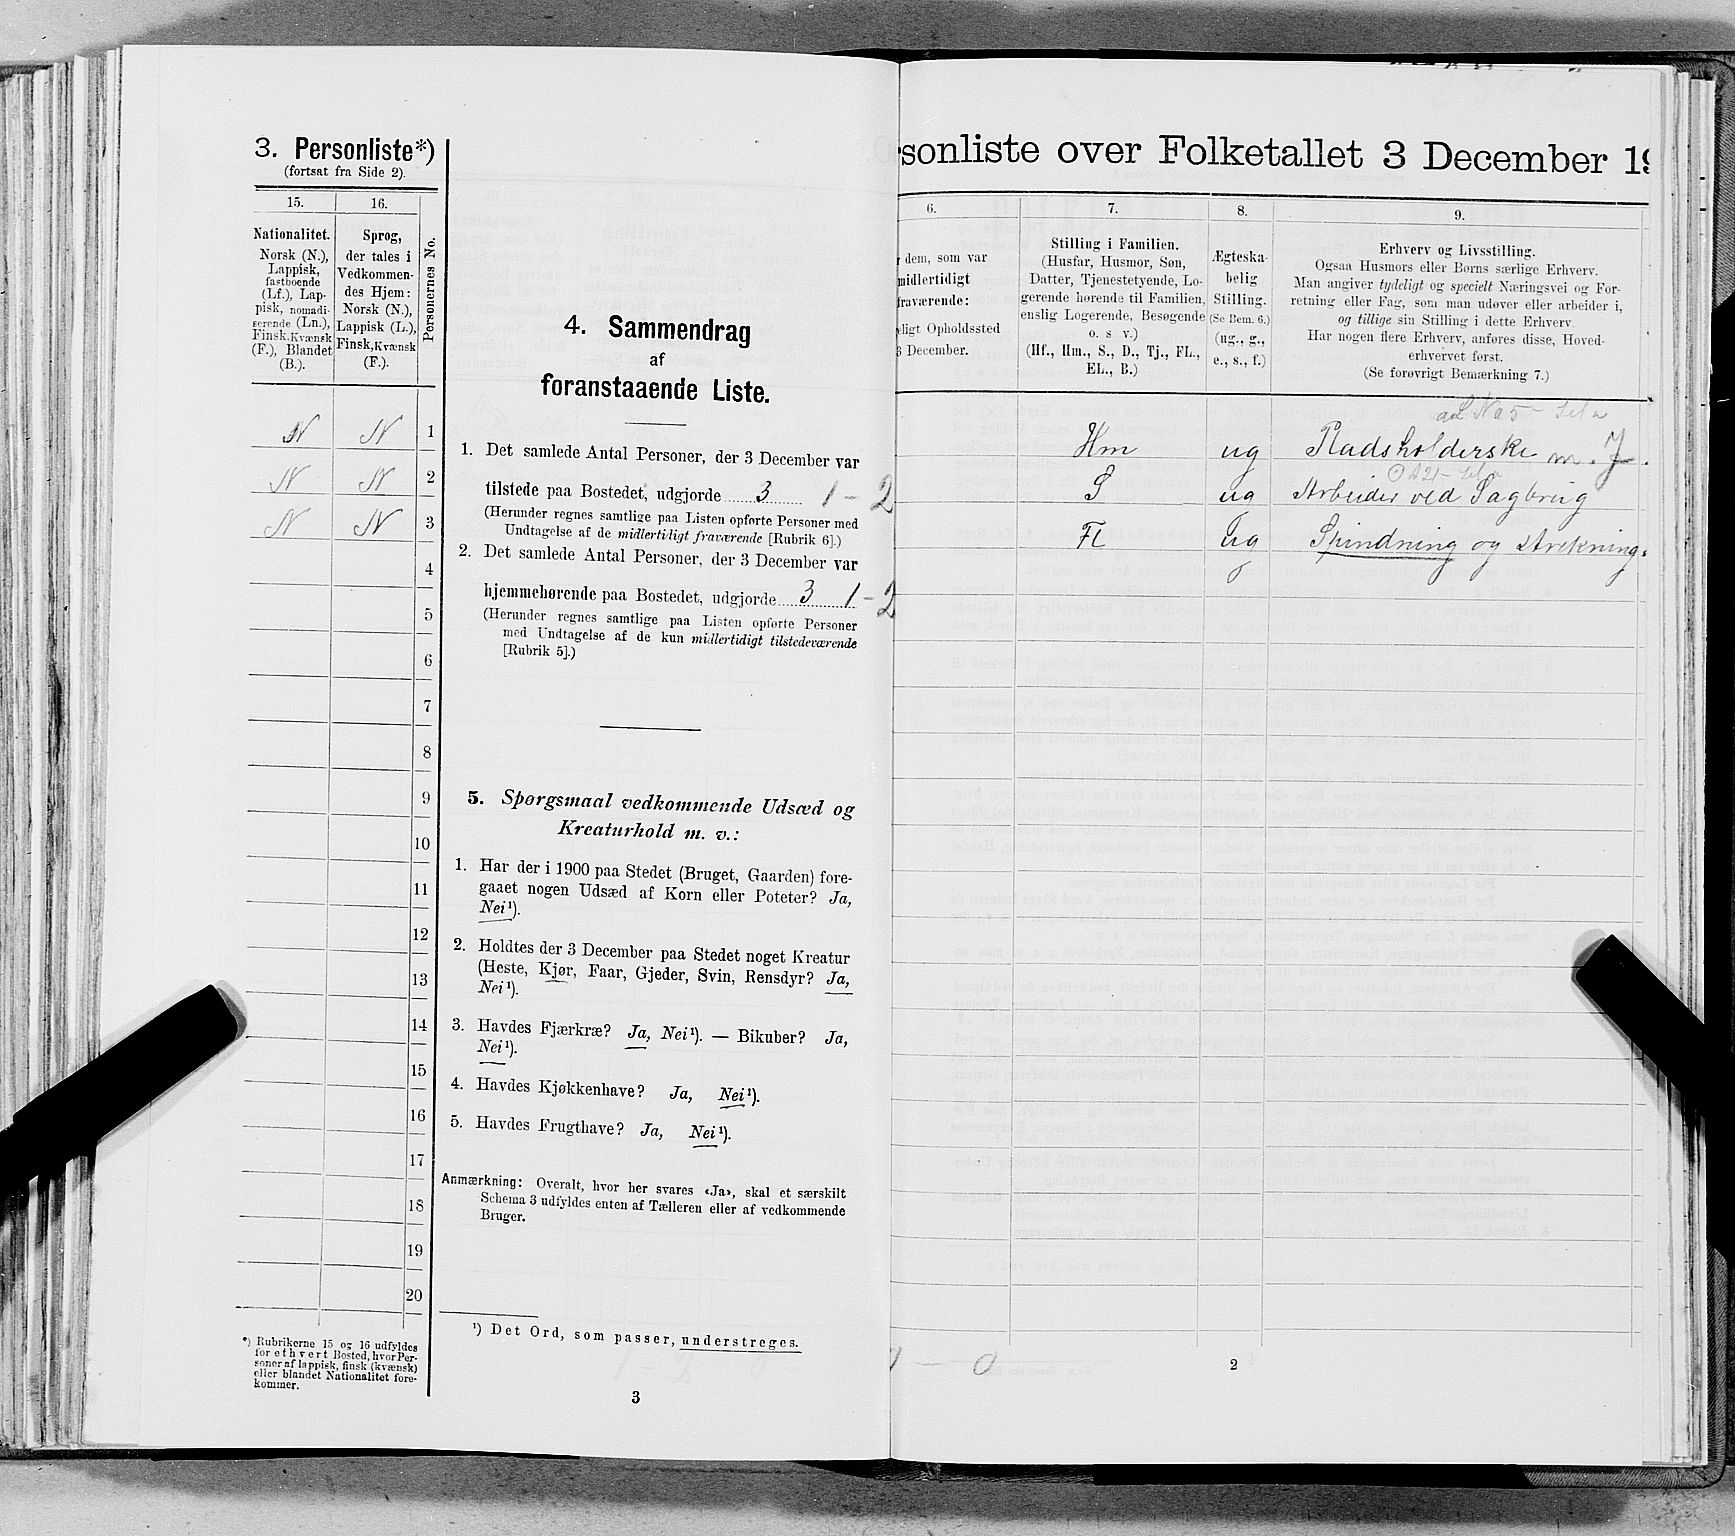 3. Personliste*)
(fortsat fra Side 2).
15.
16.
Personernes No.
Nationalitet.
Norsk (N.),
Lappisk,
fastboende
(Lf.), Lap-
pisk, nomadi-
serende (Ln.),
Finsk, Kvænsk
(F.), Blandet
(B.).
Sprog,
der tales i
Vedkommen-
des Hjem:
Norsk (N.),
Lappisk (L.),
Finsk, Kvænsk
(F.).
N N 1
N N 2
N N 3
4
5
6
7
8
9
10
11
12
13
14
15
16
17
18
19
20
*) Rubrikerne 15 og 16 udfyldes
for ethvert Bosted, hvor Per-
soner af lappisk, finsk (kvænsk)
eller blandet Nationalitet fore-
kommer.
4. Sammendrag
af
foranstaaende Liste.
1. Det samlede Antal Personer, der 3 December var
tilstede paa Bostedet, udgjorde 3 1 - 2
(Herunder regnes samtlige paa Listen opførte Personer med
Undtagelse af de midlertidigt fraværende [Rubrik 6].)
2. Det samlede Antal Personer, der 3 December var
hjemmehørende paa Bostedet, udgjorde 3 1 - 2
(Herunder regnes samtlige paa Listen opførte Personer
med Undtagelse af de kun midlertidigt tilstedeværende
[Rubrik 5].)
5. Spørgsmaal vedkommende Udsæd og
Kreaturhold m. v.:
1. Har der i 1900 paa Stedet (Bruget, Gaarden) fore-
gaaet nogen Udsæd af Korn eller Poteter? Ja,
Nei¹).
2. Holdtes der 3 December paa Stedet noget Kreatur
(Heste, Kjør, Faar, Gjeder, Svin, Rensdyr? Ja,
Nei¹).
3. Havdes Fjærkræ? Ja, Nei¹). — Bikuber? Ja,
Nei¹).
4. Havdes Kjøkkenhave? Ja, Nei¹).
5. Havdes Frugthave? Ja, Nei¹).
Anmærkning: Overalt, hvor her svares «Ja», skal et særskilt
Schema 3 udfyldes enten af Tælleren eller af vedkommende
Bruger.
¹) Det Ord, som passer, understreges.
3
rsonliste over Folketallet 3 December 19
6.
7.
8.
9.
dem, som var
midlertidigt
fraværende:
eligt Opholdssted
3 December.
Stilling i Familien.
(Husfar, Husmor, Søn,
Datter, Tjenestetyende, Lo-
gerende hørende til Familien,
enslig Logerende, Besøgende
o. s v.)
(Hf., Hm., S., D., Tj., FL.,
EL., B.)
Ægteska-
belig
Stilling.
(Se Bem. 6.)
(ug., g.,
e., s., f.)
Erhverv og Livsstilling.
Ogsaa Husmors eller Børns særlige Erhverv.
Man angiver tydeligt og specielt Næringsvei og For-
retning eller Fag, som man udøver eller arbeider i,
og tillige sin Stilling i dette Erhverv.
Har nogen flere Erhverv, anføres disse, Hoved-
erhvervet først.
(Se forøvrigt Bemærkning 7.)
Hm ug Pladsholderske m. J.
S ug Arbeider ved Sagbrug
Fl ug Spindning og Strikning.
0
2